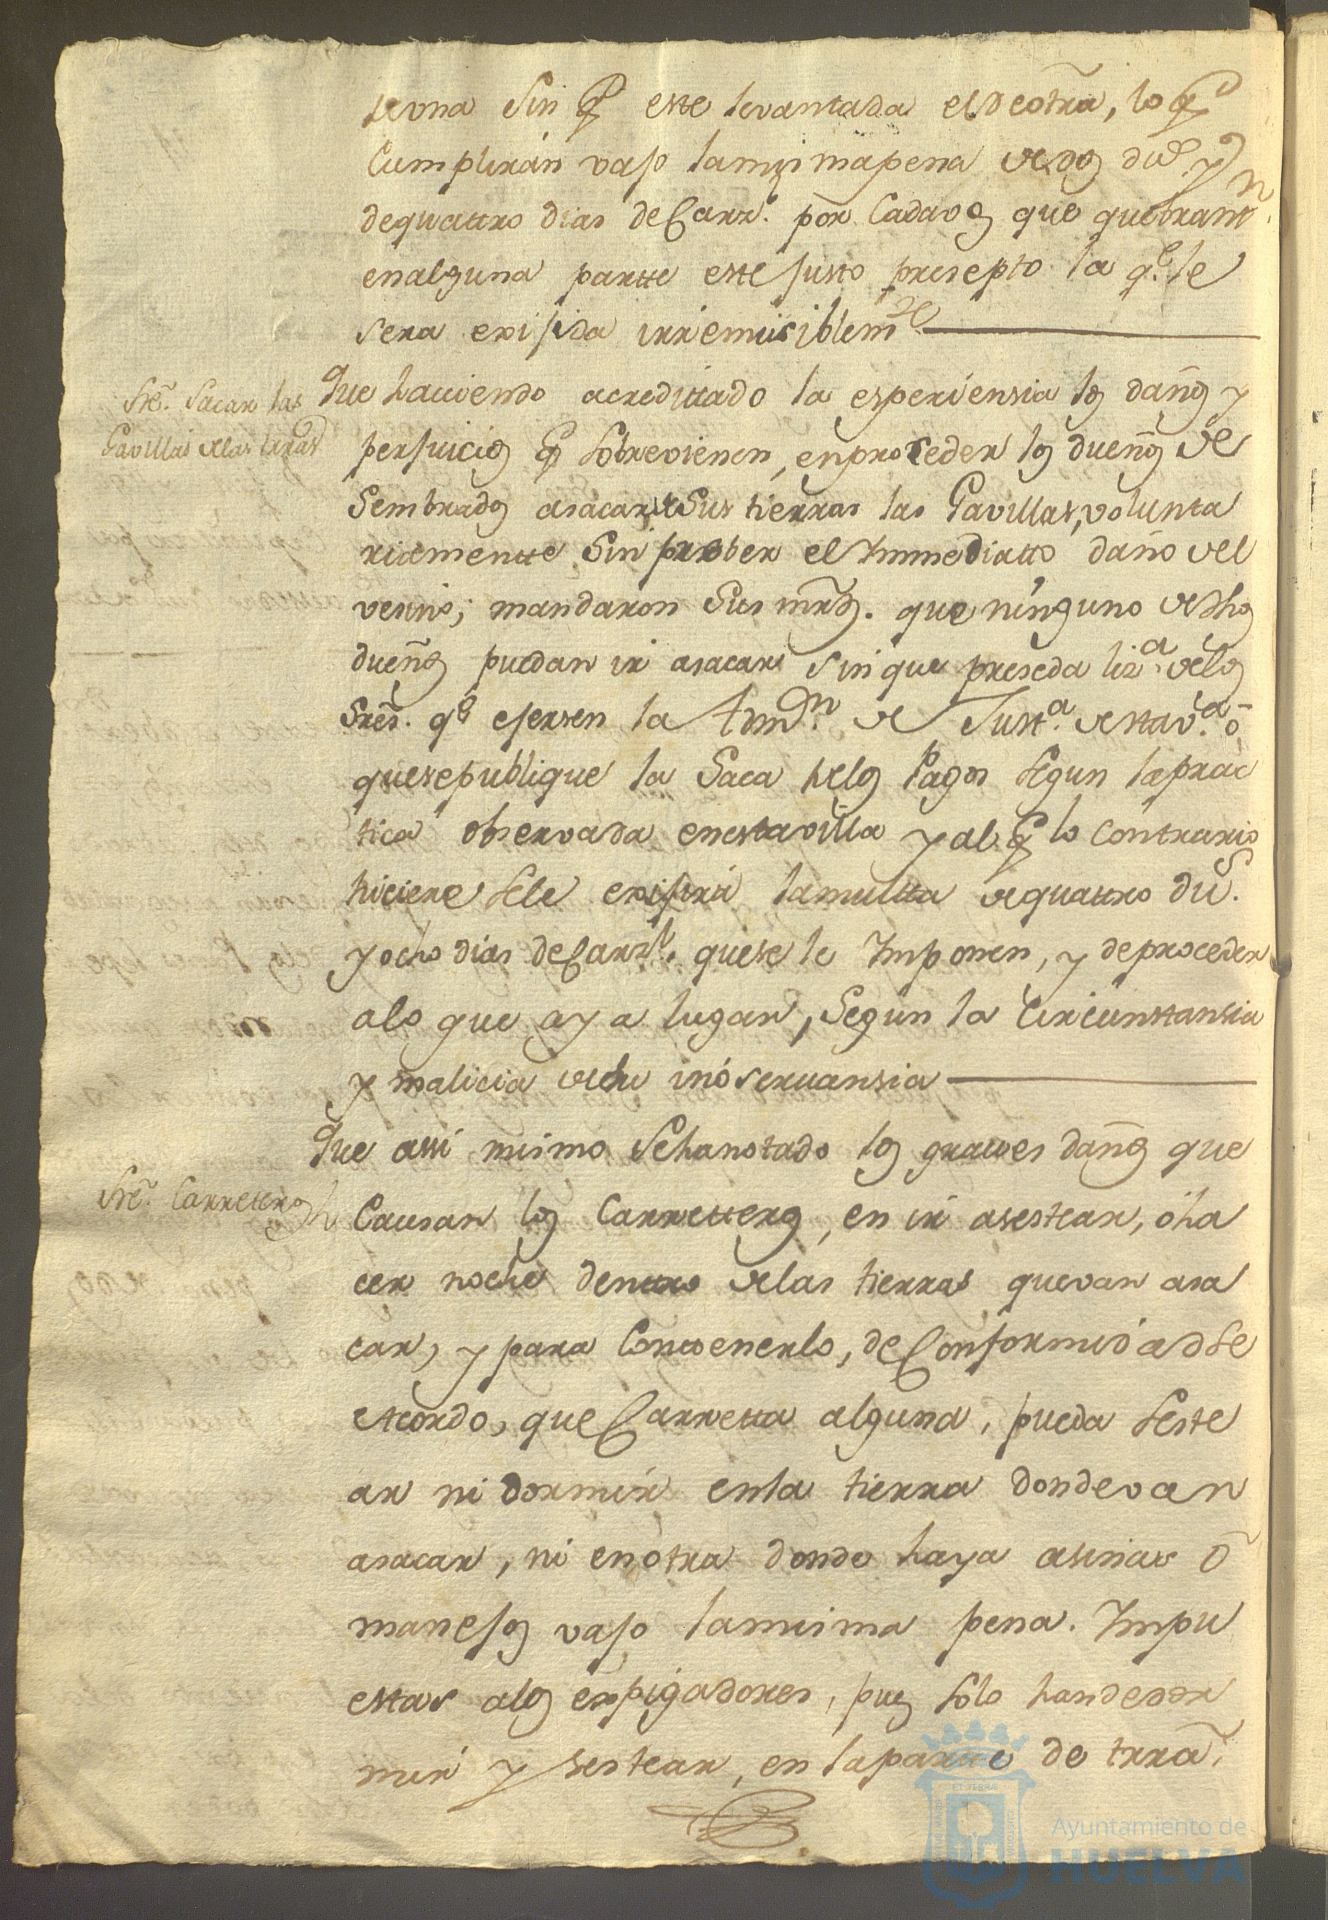 de una sin q̃ este levantada el de otrã, lo q̃
Cumplirán vajo la misma pena de dos duc.s y
de quattro dias de Carz.l por Cadavos que quebrant.n
en alguna partte este justo presepto la q.e le
sera exijida irremisiblem.te
Sre. Sacar las
Gavillas de las tierras
Que haviendo acredittado la esperiensia los daños y
perjuicios q̃ sobrevienen, en proceder los dueños de
Sembrados a sacar de sus tierras las Gavillas, volunta
riamentte sin preber el Immediatto daño del
vesino; mandaron Sus mrds. que ninguno de dhos
dueños puedan ir a sacar sin que preseda liz.a de los
Sres. q.e ejersen la Admn.n de Justt.a de sta v.a ô
que se publique la Saca de los Pagos segun la prac
tica observada en esta villa y al q̃ lo Contrario
hiciere sele exijirá la multta de quattro du.s
y ocho dias de Carz.l que se le Imponen, y de proceder
a lo que aya lugar, segun la Circunstansia
y malicia de su inóservansia
Sre. Carretteros
Que assi mismo se ha notado los graves daños que
Causan los Carretteros, en ir a sestear, ô ha
cer noche dentro de las tierras que van a sa
car, y para Contenerlo, de Conformidad se
acordo, que Carretta alguna, pueda seste
ar ni dormir en la tierra donde van
a sacar, ni en otra donde haya asinas ô
manojos vajo la misma pena. Impu
estas a los expigadores, pues solo han de dor
mir y sestear, en la partte de trrã,
Ayuntamiento de
HUELVA